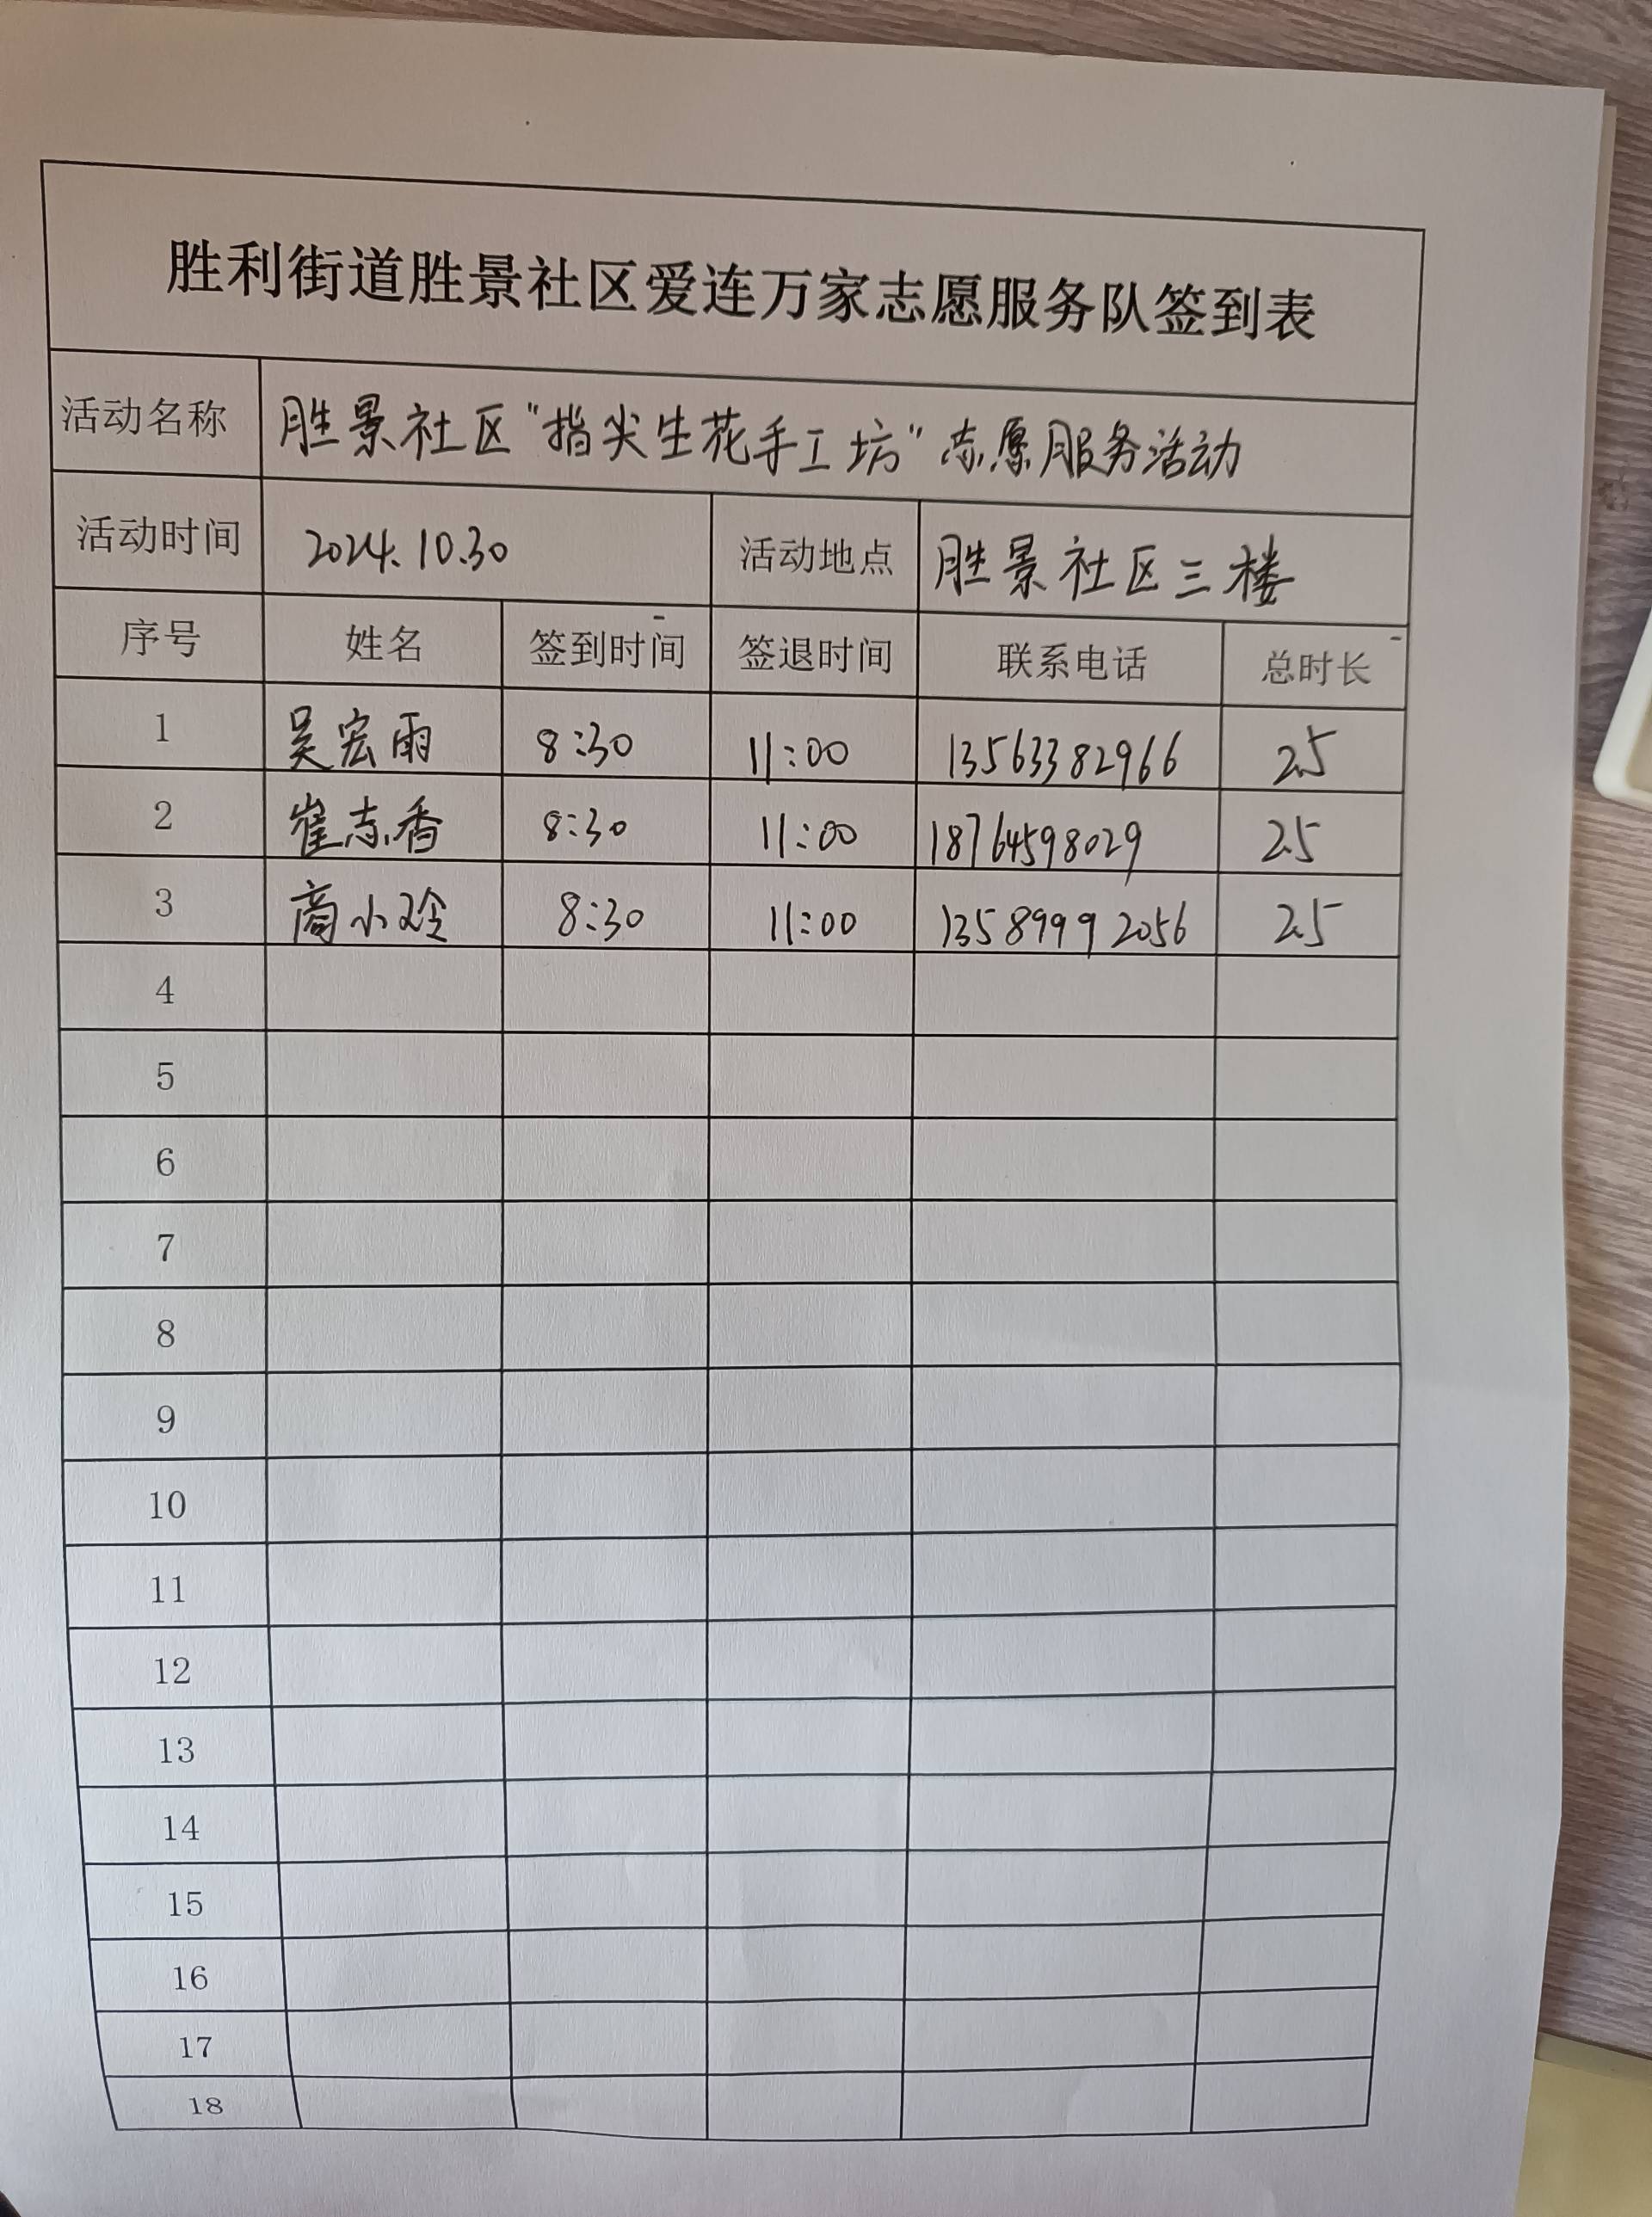 胜利街道胜景社区爱连万家志愿服务队签到表
活动名称 胜景社区"指尖生花手工坊"志愿服务活动
活动时间 2024.10.30 活动地点 胜景社区三楼
序号 姓名 签到时间 签退时间 联系电话 总时长
1 吴宏雨 8:30 11:00 13563382966 2.5
2 崔志香 8:30 11:00 18764598029 2.5
3 商小玲 8:30 11:00 13589992056 2.5
4
5
6
7
8
9
10
11
12
13
14
15
16
17
18